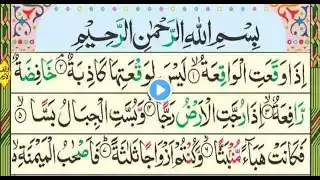 بِسْمِ اللهِ الرَّحْمٰنِ الرَّحِيْمِ
اِذَا وَقَعَتِ الْوَاقِعَةُ ۙ‏﴿۱﴾ لَيْسَ لِوَقْعَتِهَا كَاذِبَةٌ ۘ‏﴿۲﴾ خَافِضَةٌ
رَّافِعَةٌ ۙ‏﴿۳﴾ اِذَا رُجَّتِ الْاَرْضُ رَجًّا ۙ‏﴿۴﴾ وَّبُسَّتِ الْجِبَالُ بَسًّا ۙ‏﴿۵﴾
فَكَانَتْ هَبَآءً مُّنْۢبَثًّا ۙ‏﴿۶﴾ وَّكُنْتُمْ اَزْوَاجًا ثَلٰثَةً ؕ‏﴿۷﴾ فَاَصْحٰبُ الْمَيْمَنَةِ ۙ